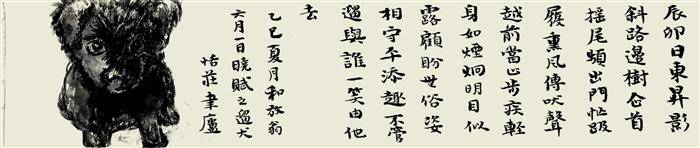 辰卯日東昇影
斜路邊樹首
搖尾頻出門忙
履熏風傳吠聲
越前當止步疾輕
身如煙炯明目似
露顧盼世俗姿
相守平添趣不管
遛與誰一笑由他
去
乙巳夏月和放翁
六月一日曉賦之遛犬
恬莊聿廬